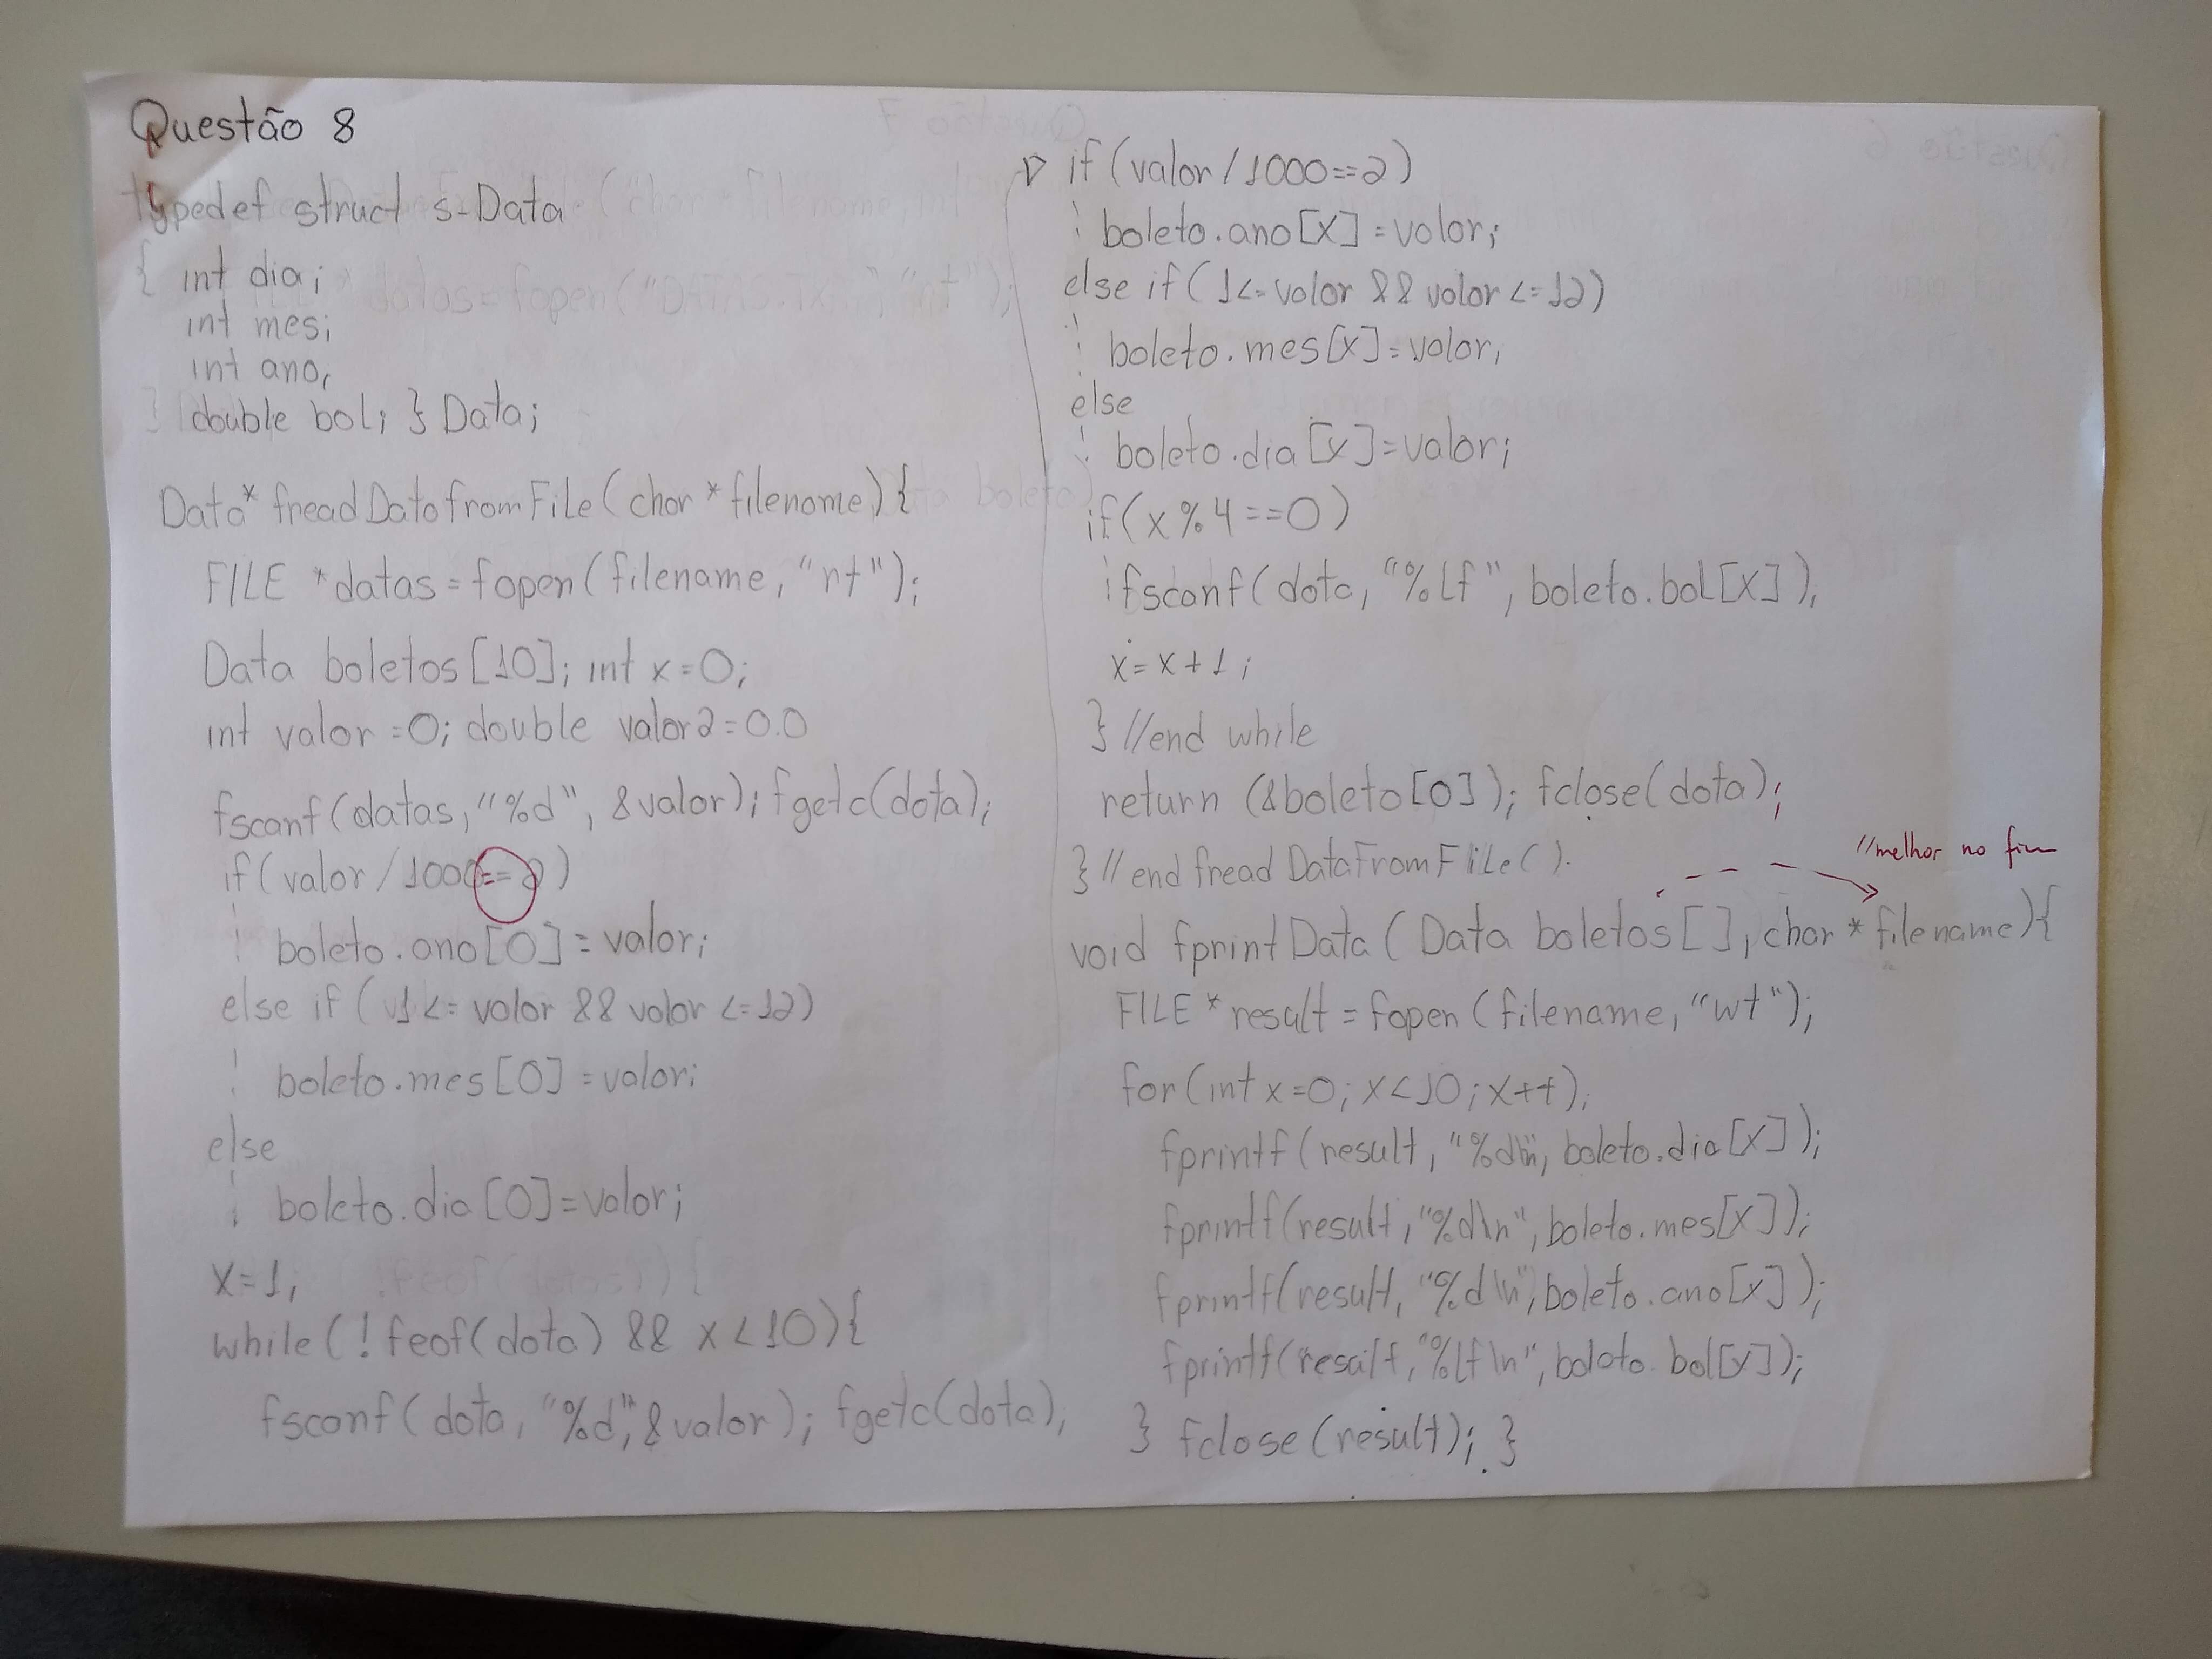 Questão 8
typedef struct s-Data
{ int dia;
int mes;
int ano;
double bol; } Data;
Data* freadDatafromFile(char *filename){
FILE *datas=fopen(filename, "rt");
Data boletos[10]; int x=0;
int valor=0; double valor2=0.0
fscanf(datas, "%d", &valor); fgetc(data);
if(valor/1000==2)
boleto.ano[0]=valor;
else if(1<=valor && valor<=12)
boleto.mes[0]=valor;
else
boleto.dia[0]=valor;
x=1;
while(!feof(data) && x<10){
fscanf(data, "%d", &valor); fgetc(data);
if(valor/1000==2)
boleto.ano[x]=valor;
else if(1<=valor && valor<=12)
boleto.mes[x]=valor;
else
boleto.dia[x]=valor;
if(x%4==0)
fscanf(data, "%lf", boleto.bol[x]);
x=x+1;
} //end while
return (&boleto[0]); fclose(data);
} //end freadDataFromFile().
//melhor no fim
void fprintData(Data boletos[], char *filename){
FILE *result=fopen(filename, "wt");
for(int x=0; x<10; x++);
fprintf(result, "%d\n", boleto.dia[x]);
fprintf(result, "%d\n", boleto.mes[x]);
fprintf(result, "%d\n", boleto.ano[x]);
fprintf(result, "%lf\n", boleto.bol[x]);
} fclose(result); }